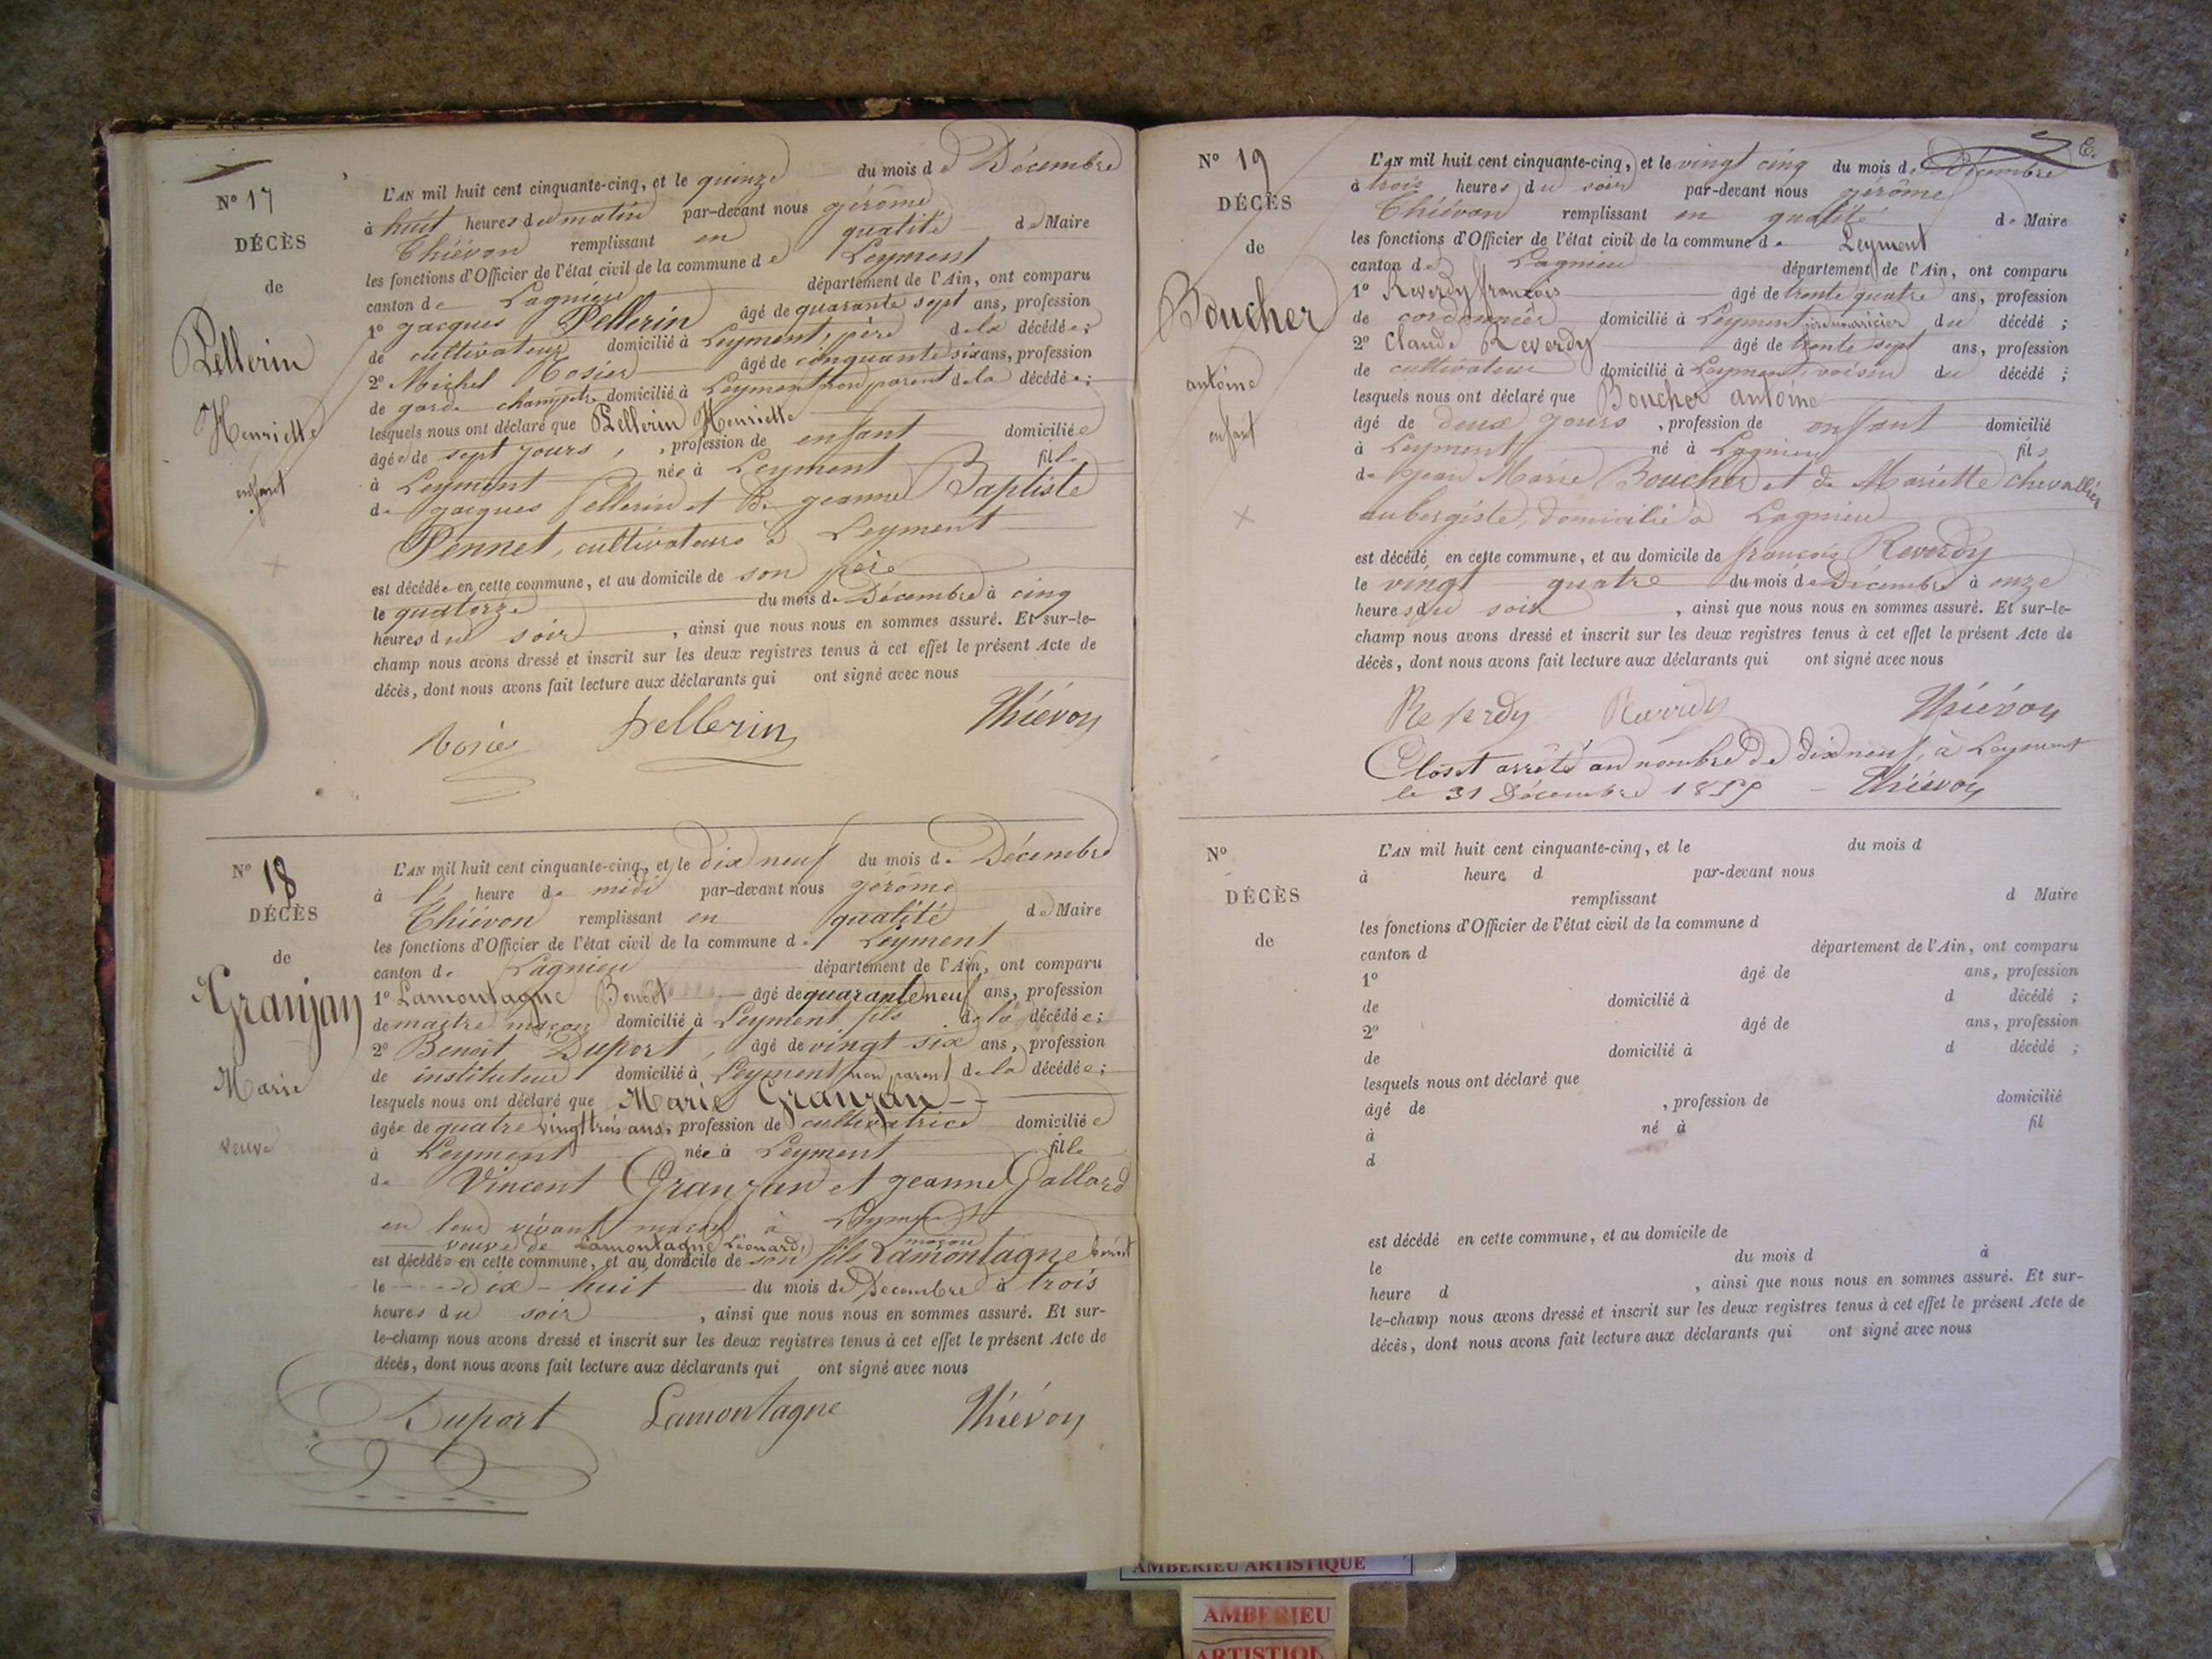 N° 17
DÉCÈS
de
Pellerin
Henriette
enfant
L'AN mil huit cent cinquante-cinq, et le quinze du mois de Décembre
à huit heures du matin par-devant nous gérôme
Thiévon remplissant en qualité de Maire
les fonctions d'Officier de l'état civil de la commune de Leyment
canton de Lagnieu département de l'Ain, ont comparu
1° jacques Pellerin âgé de quarante sept ans, profession
de cultivateur domicilié à Leyment, père de la décédée;
2° Michel Rosier âgé de cinquante six ans, profession
de garde champêtre domicilié à Leyment non parent de la décédée;
lesquels nous ont déclaré que Pellerin Henriette
âgée de sept jours, profession de enfant domiciliée
à Leyment née à Leyment fille
de jacques Pellerin et de jeanne Baptiste
Pennet, cultivateurs à Leyment
est décédée en cette commune, et au domicile de son père
le quatorze du mois de Décembre à cinq
heures du soir, ainsi que nous nous en sommes assuré. Et sur-le-
champ nous avons dressé et inscrit sur les deux registres tenus à cet effet le présent Acte de
décès, dont nous avons fait lecture aux déclarants qui ont signé avec nous
Rosier Pellerin Thiévon
N° 18
DÉCÈS
de
Granjan
Marie
veuve
L'AN mil huit cent cinquante-cinq, et le dix neuf du mois de Décembre
à l' heure de midi par-devant nous gérôme
Thiévon remplissant en qualité de Maire
les fonctions d'Officier de l'état civil de la commune de Leyment
canton de Lagnieu département de l'Ain, ont comparu
1° Lamontagne Benoit âgé de quarante neuf ans, profession
de maître maçon domicilié à Leyment fils de la décédée;
2° Benoit Duport, âgé de vingt six ans, profession
de instituteur domicilié à Leyment non parent de la décédée;
lesquels nous ont déclaré que Marie Granjan
âgée de quatre vingt trois ans, profession de cultivatrice domiciliée
à Leyment née à Leyment fille
de Vincent Granjan et jeanne Gallard
en leur vivant maçon à Leyment
veuve de Lamontagne Léonard, maçon
est décédée en cette commune, et au domicile de son fils Lamontagne benoit
le dix-huit du mois de Décembre à trois
heures du soir, ainsi que nous nous en sommes assuré. Et sur-
le-champ nous avons dressé et inscrit sur les deux registres tenus à cet effet le présent Acte de
décès, dont nous avons fait lecture aux déclarants qui ont signé avec nous
Duport Lamontagne Thiévon
N° 19
DÉCÈS
de
Boucher
antoine
enfant
L'AN mil huit cent cinquante-cinq, et le vingt cinq du mois de Décembre
à trois heures du soir par-devant nous gérôme
Thiévon remplissant en qualité de Maire
les fonctions d'Officier de l'état civil de la commune de Leyment
canton de Lagnieu département de l'Ain, ont comparu
1° Reverdy françois âgé de trente quatre ans, profession
de cordonnier domicilié à Leyment père nourricier du décédé;
2° Claude Reverdy âgé de trente sept ans, profession
de cultivateur domicilié à Leyment, voisin du décédé;
lesquels nous ont déclaré que Boucher antoine
âgé de deux jours, profession de enfant domicilié
à Leyment né à Lagnieu fils
de jean Marie Boucher et de Mariette chevallier
aubergiste, domicilié à Lagnieu
est décédé en cette commune, et au domicile de françois Reverdy
le vingt quatre du mois de Décembre à onze
heures du soir, ainsi que nous nous en sommes assuré. Et sur-le-
champ nous avons dressé et inscrit sur les deux registres tenus à cet effet le présent Acte de
décès, dont nous avons fait lecture aux déclarants qui ont signé avec nous
Reverdy Reverdy Thiévon
Clos et arrêté au nombre de dix neuf, à Leyment
le 31 Décembre 1855 - Thiévon
N°
DÉCÈS
de
L'AN mil huit cent cinquante-cinq, et le du mois d
à heure d par-devant nous
remplissant d Maire
les fonctions d'Officier de l'état civil de la commune d
canton d département de l'Ain, ont comparu
1° âgé de ans, profession
de domicilié à d décédé;
2° âgé de ans, profession
de domicilié à d décédé;
lesquels nous ont déclaré que
âgé de , profession de domicilié
à né à fil
d
est décédé en cette commune, et au domicile de
le du mois d à
heure d , ainsi que nous nous en sommes assuré. Et sur-
le-champ nous avons dressé et inscrit sur les deux registres tenus à cet effet le présent Acte de
décès, dont nous avons fait lecture aux déclarants qui ont signé avec nous
AMBERIEU ARTISTIQUE
AMBERIEU